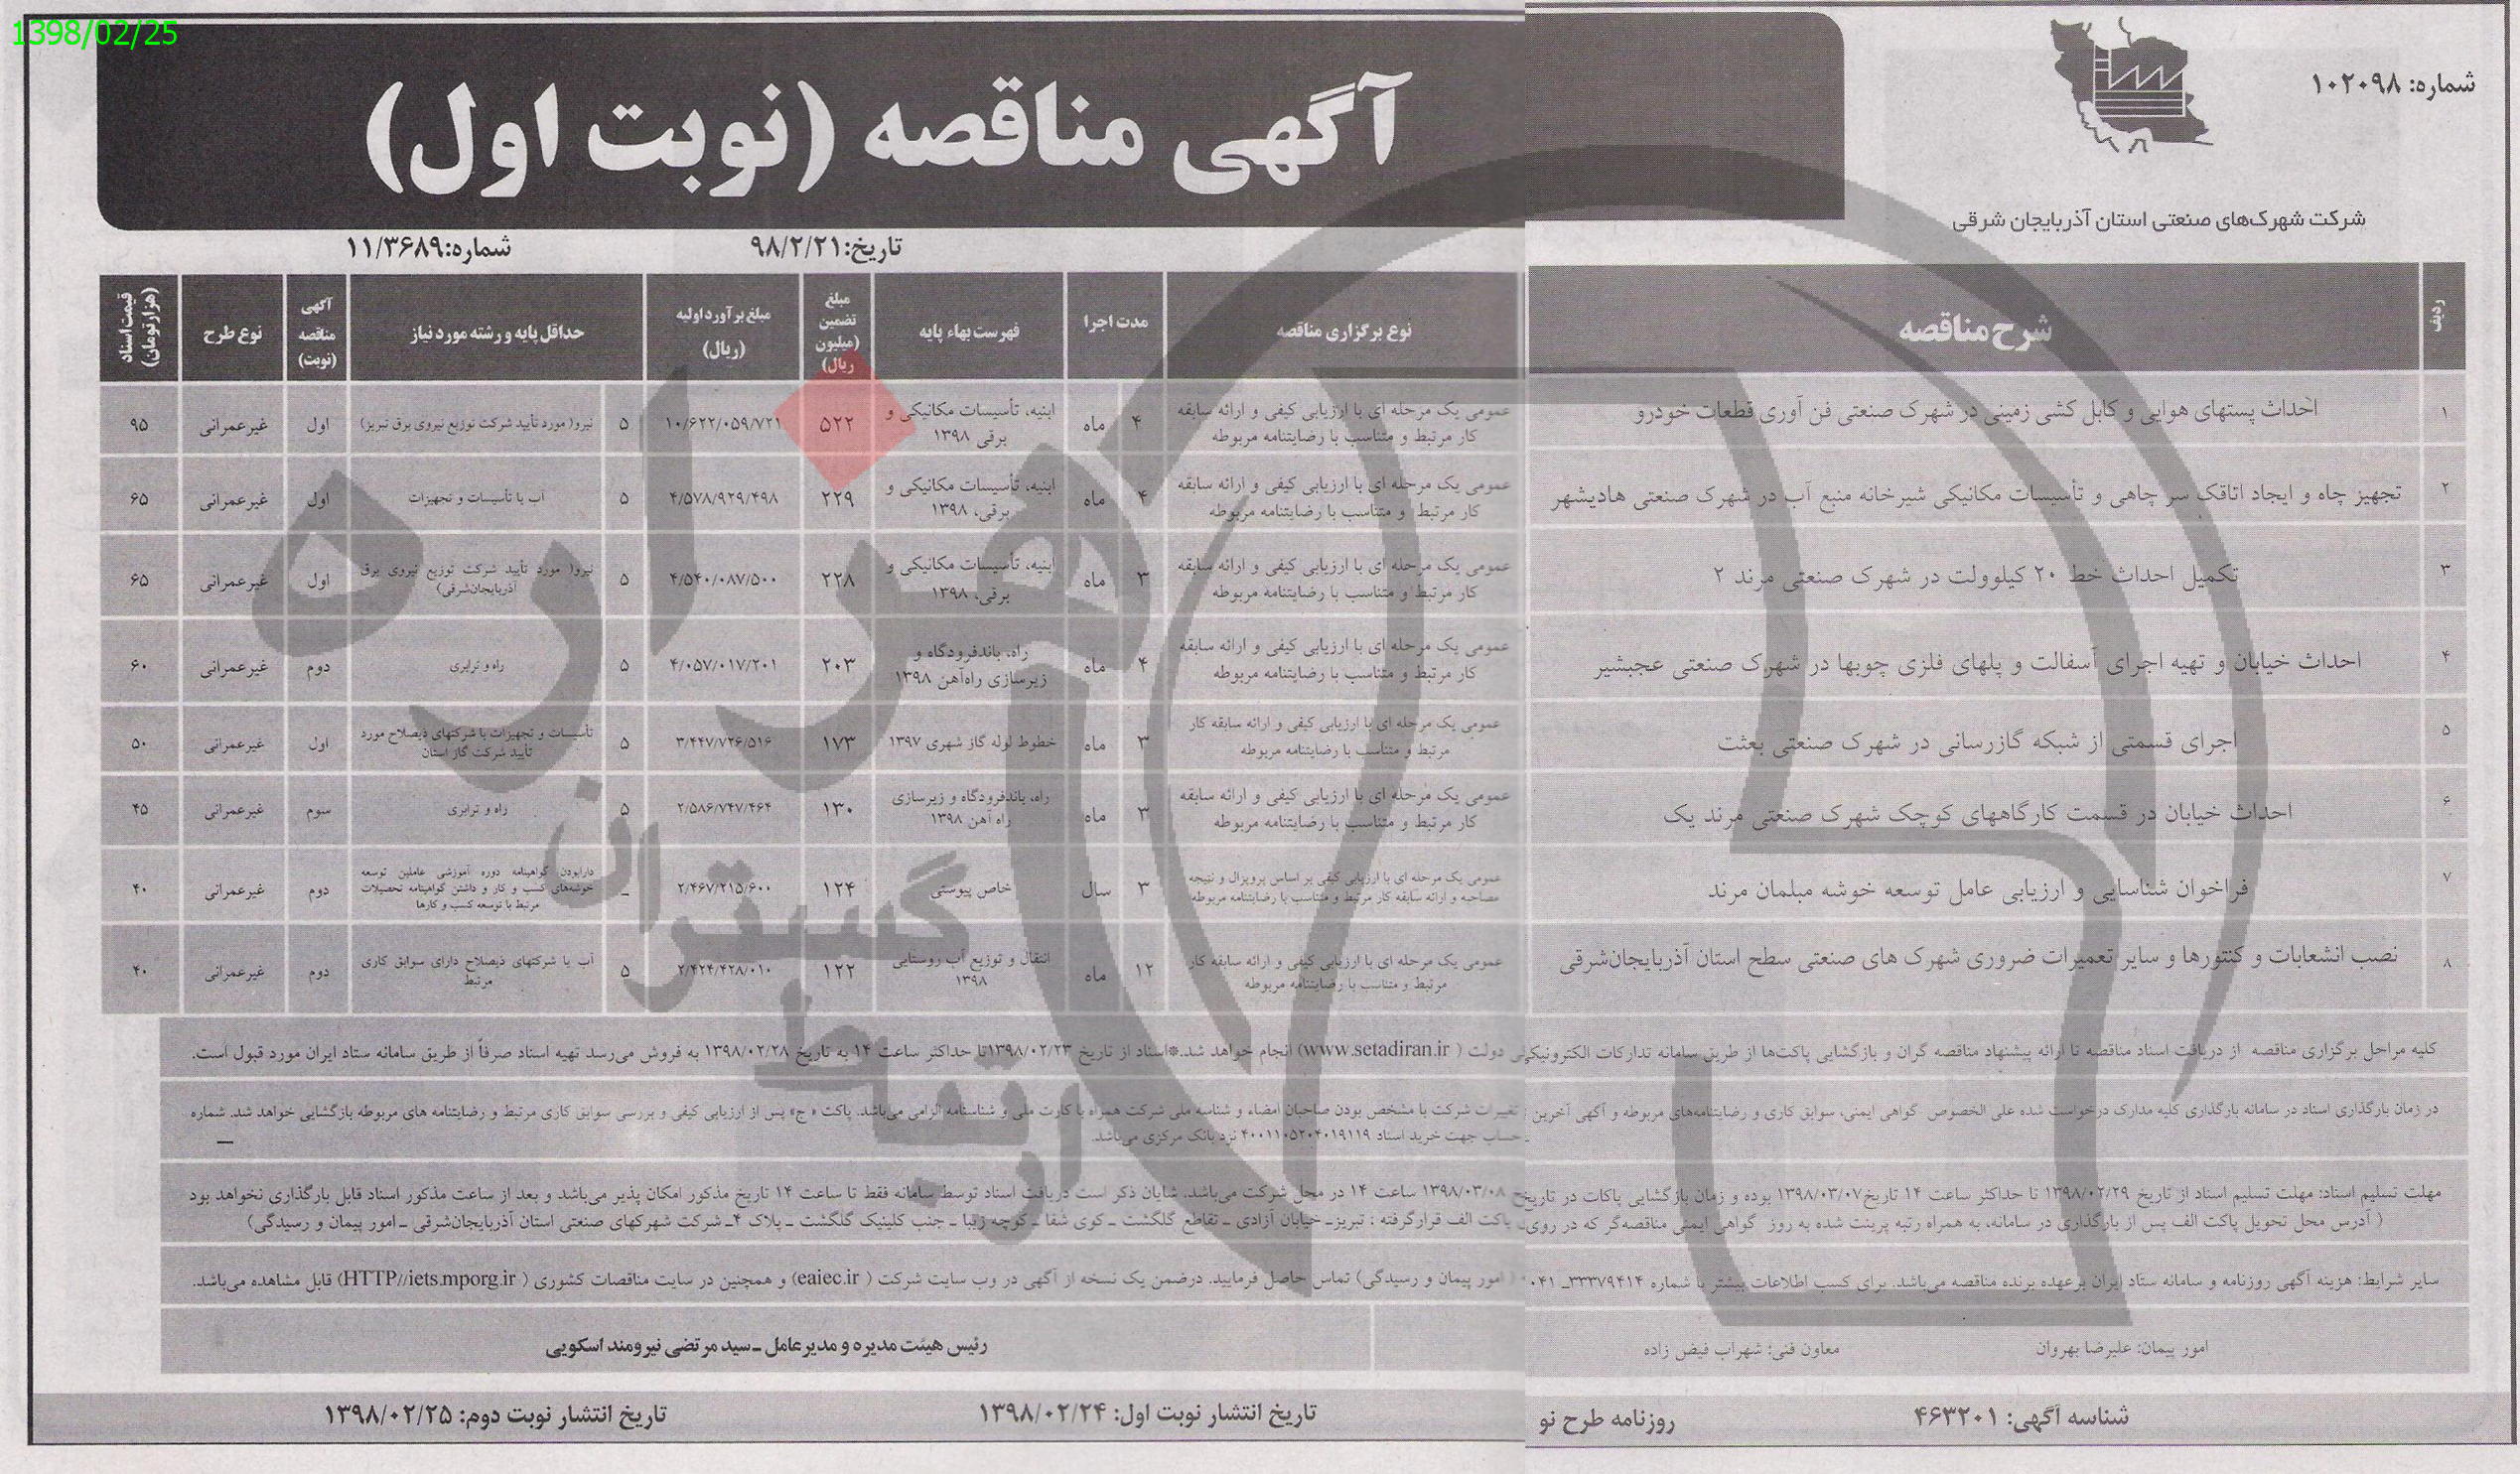 1398/02/25
شماره: ۱۰۲۰۹۸
شرکت شهرک‌های صنعتی استان آذربایجان شرقی
آگهی مناقصه (نوبت اول)
تاریخ: ۹۸/۲/۲۱ شماره: ۱۱/۳۶۸۹
ردیف شرح مناقصه نوع برگزاری مناقصه مدت اجرا فهرست بهاء پایه مبلغ تضمین (میلیون ریال) مبلغ برآورد اولیه (ریال) حداقل پایه و رشته مورد نیاز آگهی مناقصه (نوبت) نوع طرح قیمت اسناد (هزار تومان)
۱ احداث پستهای هوایی و کابل کشی زمینی در شهرک صنعتی فن آوری قطعات خودرو عمومی یک مرحله ای با ارزیابی کیفی و ارائه سابقه کار مرتبط و متناسب با رضایتنامه مربوطه ۴ ماه ابنیه، تأسیسات مکانیکی و برقی ۱۳۹۸ ۵۲۲ ۱۰/۶۲۲/۰۵۹/۷۲۱ ۵ نیرو( مورد تأیید شرکت توزیع نیروی برق تبریز) اول غیرعمرانی ۹۵
۲ تجهیز چاه و ایجاد اتاقک سر چاهی و تأسیسات مکانیکی شیرخانه منبع آب در شهرک صنعتی هادیشهر عمومی یک مرحله ای با ارزیابی کیفی و ارائه سابقه کار مرتبط و متناسب با رضایتنامه مربوطه ۴ ماه ابنیه، تأسیسات مکانیکی و برقی، ۱۳۹۸ ۲۲۹ ۴/۵۷۸/۹۲۹/۴۹۸ ۵ آب یا تأسیسات و تجهیزات اول غیرعمرانی ۶۵
۳ تکمیل احداث خط ۲۰ کیلوولت در شهرک صنعتی مرند ۲ عمومی یک مرحله ای با ارزیابی کیفی و ارائه سابقه کار مرتبط و متناسب با رضایتنامه مربوطه ۳ ماه ابنیه، تأسیسات مکانیکی و برقی، ۱۳۹۸ ۲۲۸ ۴/۵۴۰/۰۸۷/۵۰۰ ۵ نیرو( مورد تأیید شرکت توزیع نیروی برق آذربایجان‌شرقی) اول غیرعمرانی ۶۵
۴ احداث خیابان و تهیه اجرای آسفالت و پلهای فلزی چوبها در شهرک صنعتی عجبشیر عمومی یک مرحله ای با ارزیابی کیفی و ارائه سابقه کار مرتبط و متناسب با رضایتنامه مربوطه ۴ ماه راه، باندفرودگاه و زیرسازی راه‌آهن ۱۳۹۸ ۲۰۳ ۴/۰۵۷/۰۱۷/۲۰۱ ۵ راه و ترابری دوم غیرعمرانی ۶۰
۵ اجرای قسمتی از شبکه گازرسانی در شهرک صنعتی بعثت عمومی یک مرحله ای با ارزیابی کیفی و ارائه سابقه کار مرتبط و متناسب با رضایتنامه مربوطه ۳ ماه خطوط لوله گاز شهری ۱۳۹۷ ۱۷۳ ۳/۴۴۷/۷۲۶/۵۱۶ ۵ تأسیسات و تجهیزات یا شرکتهای ذیصلاح مورد تأیید شرکت گاز استان اول غیرعمرانی ۵۰
۶ احداث خیابان در قسمت کارگاههای کوچک شهرک صنعتی مرند یک عمومی یک مرحله ای با ارزیابی کیفی و ارائه سابقه کار مرتبط و متناسب با رضایتنامه مربوطه ۳ ماه راه، باندفرودگاه و زیرسازی راه آهن ۱۳۹۸ ۱۳۰ ۲/۵۸۶/۷۴۷/۴۶۴ ۵ راه و ترابری سوم غیرعمرانی ۴۵
۷ فراخوان شناسایی و ارزیابی عامل توسعه خوشه مبلمان مرند عمومی یک مرحله ای با ارزیابی کیفی بر اساس پروپزال و نتیجه مصاحبه و ارائه سابقه کار مرتبط و متناسب با رضایتنامه مربوطه ۳ سال خاص پیوستی ۱۲۴ ۲/۴۶۷/۲۱۵/۶۰۰ ـ دارابودن گواهینامه دوره آموزشی عاملین توسعه خوشه‌های کسب و کار و داشتن گواهینامه تحصیلات مرتبط با توسعه کسب و کارها دوم غیرعمرانی ۴۰
۸ نصب انشعابات و کنتورها و سایر تعمیرات ضروری شهرک های صنعتی سطح استان آذربایجان‌شرقی عمومی یک مرحله ای با ارزیابی کیفی و ارائه سابقه کار مرتبط و متناسب با رضایتنامه مربوطه ۱۲ ماه انتقال و توزیع آب روستایی ۱۳۹۸ ۱۲۲ ۲/۴۲۴/۴۲۸/۰۱۰ ۵ آب یا شرکتهای ذیصلاح دارای سوابق کاری مرتبط دوم غیرعمرانی ۴۰
کلیه مراحل برگزاری مناقصه از دریافت اسناد مناقصه تا ارائه پیشنهاد مناقصه گران و بازگشایی پاکت‌ها از طریق سامانه تدارکات الکترونیکی دولت ( www.setadiran.ir) انجام خواهد شد.*اسناد از تاریخ ۱۳۹۸/۰۲/۲۳تا حداکثر ساعت ۱۴ به تاریخ ۱۳۹۸/۰۲/۲۸ به فروش می‌رسد تهیه اسناد صرفاً از طریق سامانه ستاد ایران مورد قبول است.
در زمان بارگذاری اسناد در سامانه بارگذاری کلیه مدارک درخواست شده علی الخصوص گواهی ایمنی، سوابق کاری و رضایتنامه‌های مربوطه و آگهی آخرین تغییرات شرکت با مشخص بودن صاحبان امضاء و شناسه ملی شرکت همراه با کارت ملی و شناسنامه الزامی می‌باشد. پاکت « ج» پس از ارزیابی کیفی و بررسی سوابق کاری مرتبط و رضایتنامه های مربوطه بازگشایی خواهد شد. شماره
حساب جهت خرید اسناد ۴۰۰۱۱۰۵۲۰۴۰۱۹۱۱۹ نزد بانک مرکزی می‌باشد.
مهلت تسلیم اسناد: مهلت تسلیم اسناد از تاریخ ۱۳۹۸/۰۲/۲۹ تا حداکثر ساعت ۱۴ تاریخ۱۳۹۸/۰۳/۰۷ بوده و زمان بازگشایی پاکات در تاریخ ۱۳۹۸/۰۳/۰۸ ساعت ۱۴ در محل شرکت می‌باشد. شایان ذکر است دریافت اسناد توسط سامانه فقط تا ساعت ۱۴ تاریخ مذکور امکان پذیر می‌باشد و بعد از ساعت مذکور اسناد قابل بارگذاری نخواهد بود
( آدرس محل تحویل پاکت الف پس از بارگذاری در سامانه، به همراه رتبه پرینت شده به روز گواهی ایمنی مناقصه‌گر که در روی پاکت الف قرارگرفته : تبریز- خیابان آزادی ـ تقاطع گلگشت ـ کوی شفا ـ کوچه زیبا ـ جنب کلینیک گلگشت ـ پلاک ۴ـ شرکت شهرکهای صنعتی استان آذربایجان‌شرقی ـ امور پیمان و رسیدگی)
سایر شرایط: هزینه آگهی روزنامه و سامانه ستاد ایران برعهده برنده مناقصه می‌باشد. برای کسب اطلاعات بیشتر با شماره ۳۳۳۷۹۴۱۴ـ ۰۴۱ ( امور پیمان و رسیدگی) تماس حاصل فرمایید. درضمن یک نسخه از آگهی در وب سایت شرکت ( eaiec.ir) و همچنین در سایت مناقصات کشوری ( HTTP//iets.mporg.ir) قابل مشاهده می‌باشد.
امور پیمان: علیرضا بهروان معاون فنی: شهراب فیض زاده رئیس هیئت مدیره و مدیرعامل ـ سید مرتضی نیرومند اسکویی
شناسه آگهی: ۴۶۳۲۰۱ روزنامه طرح نو تاریخ انتشار نوبت اول: ۱۳۹۸/۰۲/۲۴ تاریخ انتشار نوبت دوم: ۱۳۹۸/۰۲/۲۵
هزاره
گستران
ارتباط